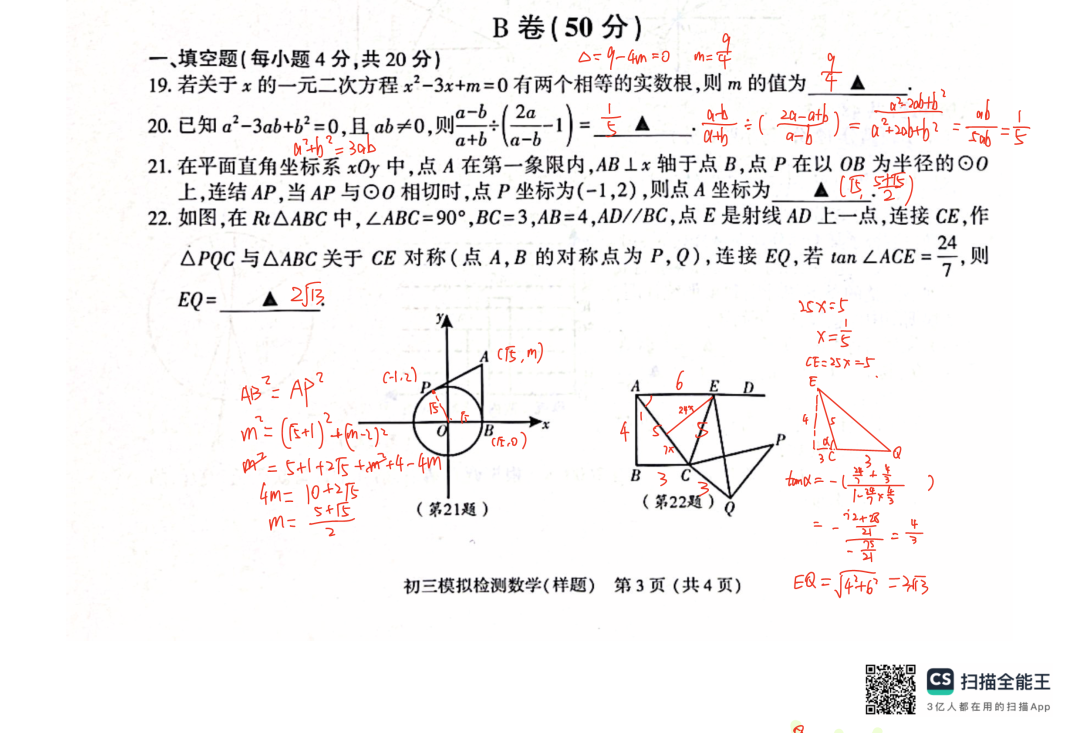 B 卷(50 分)
一、填空题(每小题 4 分,共 20 分)
Δ=9-4m=0 m=9/4
19. 若关于 x 的一元二次方程 x²-3x+m=0 有两个相等的实数根,则 m 的值为 9/4 ▲ .
20. 已知 a²-3ab+b²=0,且 ab≠0,则 (a-b)/(a+b) ÷ (2a/(a-b) -1) = 1/5 ▲ . (a-b)/(a+b) ÷ ( (2a-a+b)/(a-b) ) = (a²-2ab+b²)/(a²+2ab+b²) = ab/5ab = 1/5
a²+b²=3ab
21. 在平面直角坐标系 xOy 中,点 A 在第一象限内,AB⊥x 轴于点 B,点 P 在以 OB 为半径的⊙O
上,连结 AP,当 AP 与⊙O 相切时,点 P 坐标为(-1,2),则点 A 坐标为 ▲ (√5, (5+√5)/2) .
22. 如图,在 Rt△ABC 中,∠ABC=90°,BC=3,AB=4,AD//BC,点 E 是射线 AD 上一点,连接 CE,作
△PQC 与△ABC 关于 CE 对称(点 A,B 的对称点为 P,Q),连接 EQ,若 tan ∠ACE = 24/7,则
EQ= ▲ 2√13 .
25x=5
x=1/5
CE=25x=5
y
A (√5,m)
(-1,2)
P
√5
√5
O
B
x
(√5,0)
(第21题)
AB²=AP²
m²=(√5+1)²+(m-2)²
m²=5+1+2√5+m²+4-4m
4m=10+2√5
m=(5+√5)/2
A 6 E D
24x
4 5 5
7x
P
B 3 C
3
Q
(第22题)
E
4 5
3 α C 3 Q
tanα=-( (24/7+4/3)/(1-24/7×4/3) )
= - ((72+28)/21)/(-75/21) = 4/3
EQ=√(4²+6²)=2√13
初三模拟检测数学(样题) 第 3 页 (共 4 页)
CS 扫描全能王
3亿人都在用的扫描App